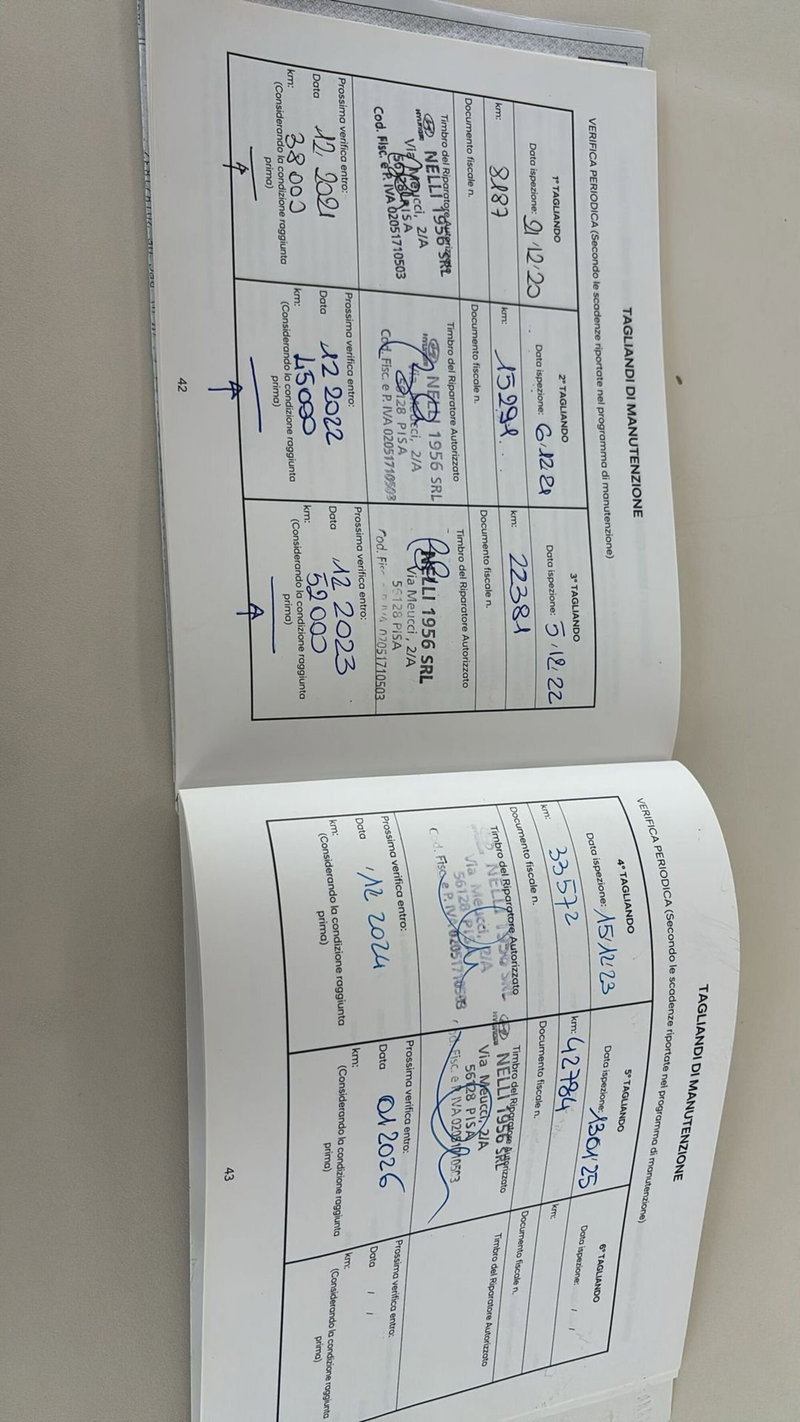 TAGLIANDI DI MANUTENZIONE
VERIFICA PERIODICA (Secondo le scadenze riportate nel programma di manutenzione)
1° TAGLIANDO
Data ispezione: 21 12 20
km: 8187
Documento fiscale n.
Timbro del Riparatore Autorizzato
HYUNDAI NELLI 1956 SRL
Via Meucci, 2/A
56128 PISA
Cod. Fisc. e P. IVA 02051710503
Prossima verifica entro:
Data 12 2021
km: 38000
(Considerando la condizione raggiunta
prima)
A
2° TAGLIANDO
Data ispezione: 6 12 21
km: 15291
Documento fiscale n.
Timbro del Riparatore Autorizzato
NELLI 1956 SRL
Via Meucci, 2/A
56128 PISA
Cod. Fisc. e P. IVA 02051710503
Prossima verifica entro:
Data 12 2022
km: 45000
(Considerando la condizione raggiunta
prima)
A
3° TAGLIANDO
Data ispezione: 5/12/22
km: 22381
Documento fiscale n.
Timbro del Riparatore Autorizzato
NELLI 1956 SRL
Via Meucci, 2/A
56128 PISA
02051710503
Prossima verifica entro:
Data 12 2023
km: 52000
(Considerando la condizione raggiunta
prima)
A
42
TAGLIANDI DI MANUTENZIONE
VERIFICA PERIODICA (Secondo le scadenze riportate nel programma di manutenzione)
4° TAGLIANDO
Data ispezione: 15/12/23
km: 33572
Documento fiscale n.
Timbro del Riparatore Autorizzato
NELLI 1956 SRL
Via Meucci, 2/A
56128 PISA
Cod. Fisc. e P. IVA 02051710503
Prossima verifica entro:
Data 12 2024
km:
(Considerando la condizione raggiunta
prima)
5° TAGLIANDO
Data ispezione: 130125
km: 42784
Documento fiscale n.
Timbro del Riparatore Autorizzato
HYUNDAI NELLI 1956 SRL
Via Meucci, 2/A
56128 PISA
Fisc. e P. IVA 02051710503
Prossima verifica entro:
Data 01 2026
km:
(Considerando la condizione raggiunta
prima)
6° TAGLIANDO
Data ispezione: / /
km:
Documento fiscale n.
Timbro del Riparatore Autorizzato
Prossima verifica entro:
Data / /
km:
(Considerando la condizione raggiunta
prima)
43